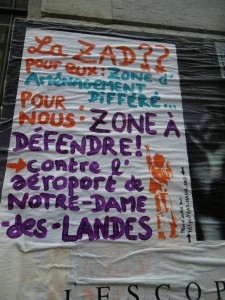 La ZAD??
pour eux: ZONE d'
AMÉNAGEMENT
DIFFÉRÉ...
POUR
NOUS: ZONE À
DÉFENDRE!
→ contre l'
aéroport de
NOTRE-DAME
des-LANDES
L'ESCOP